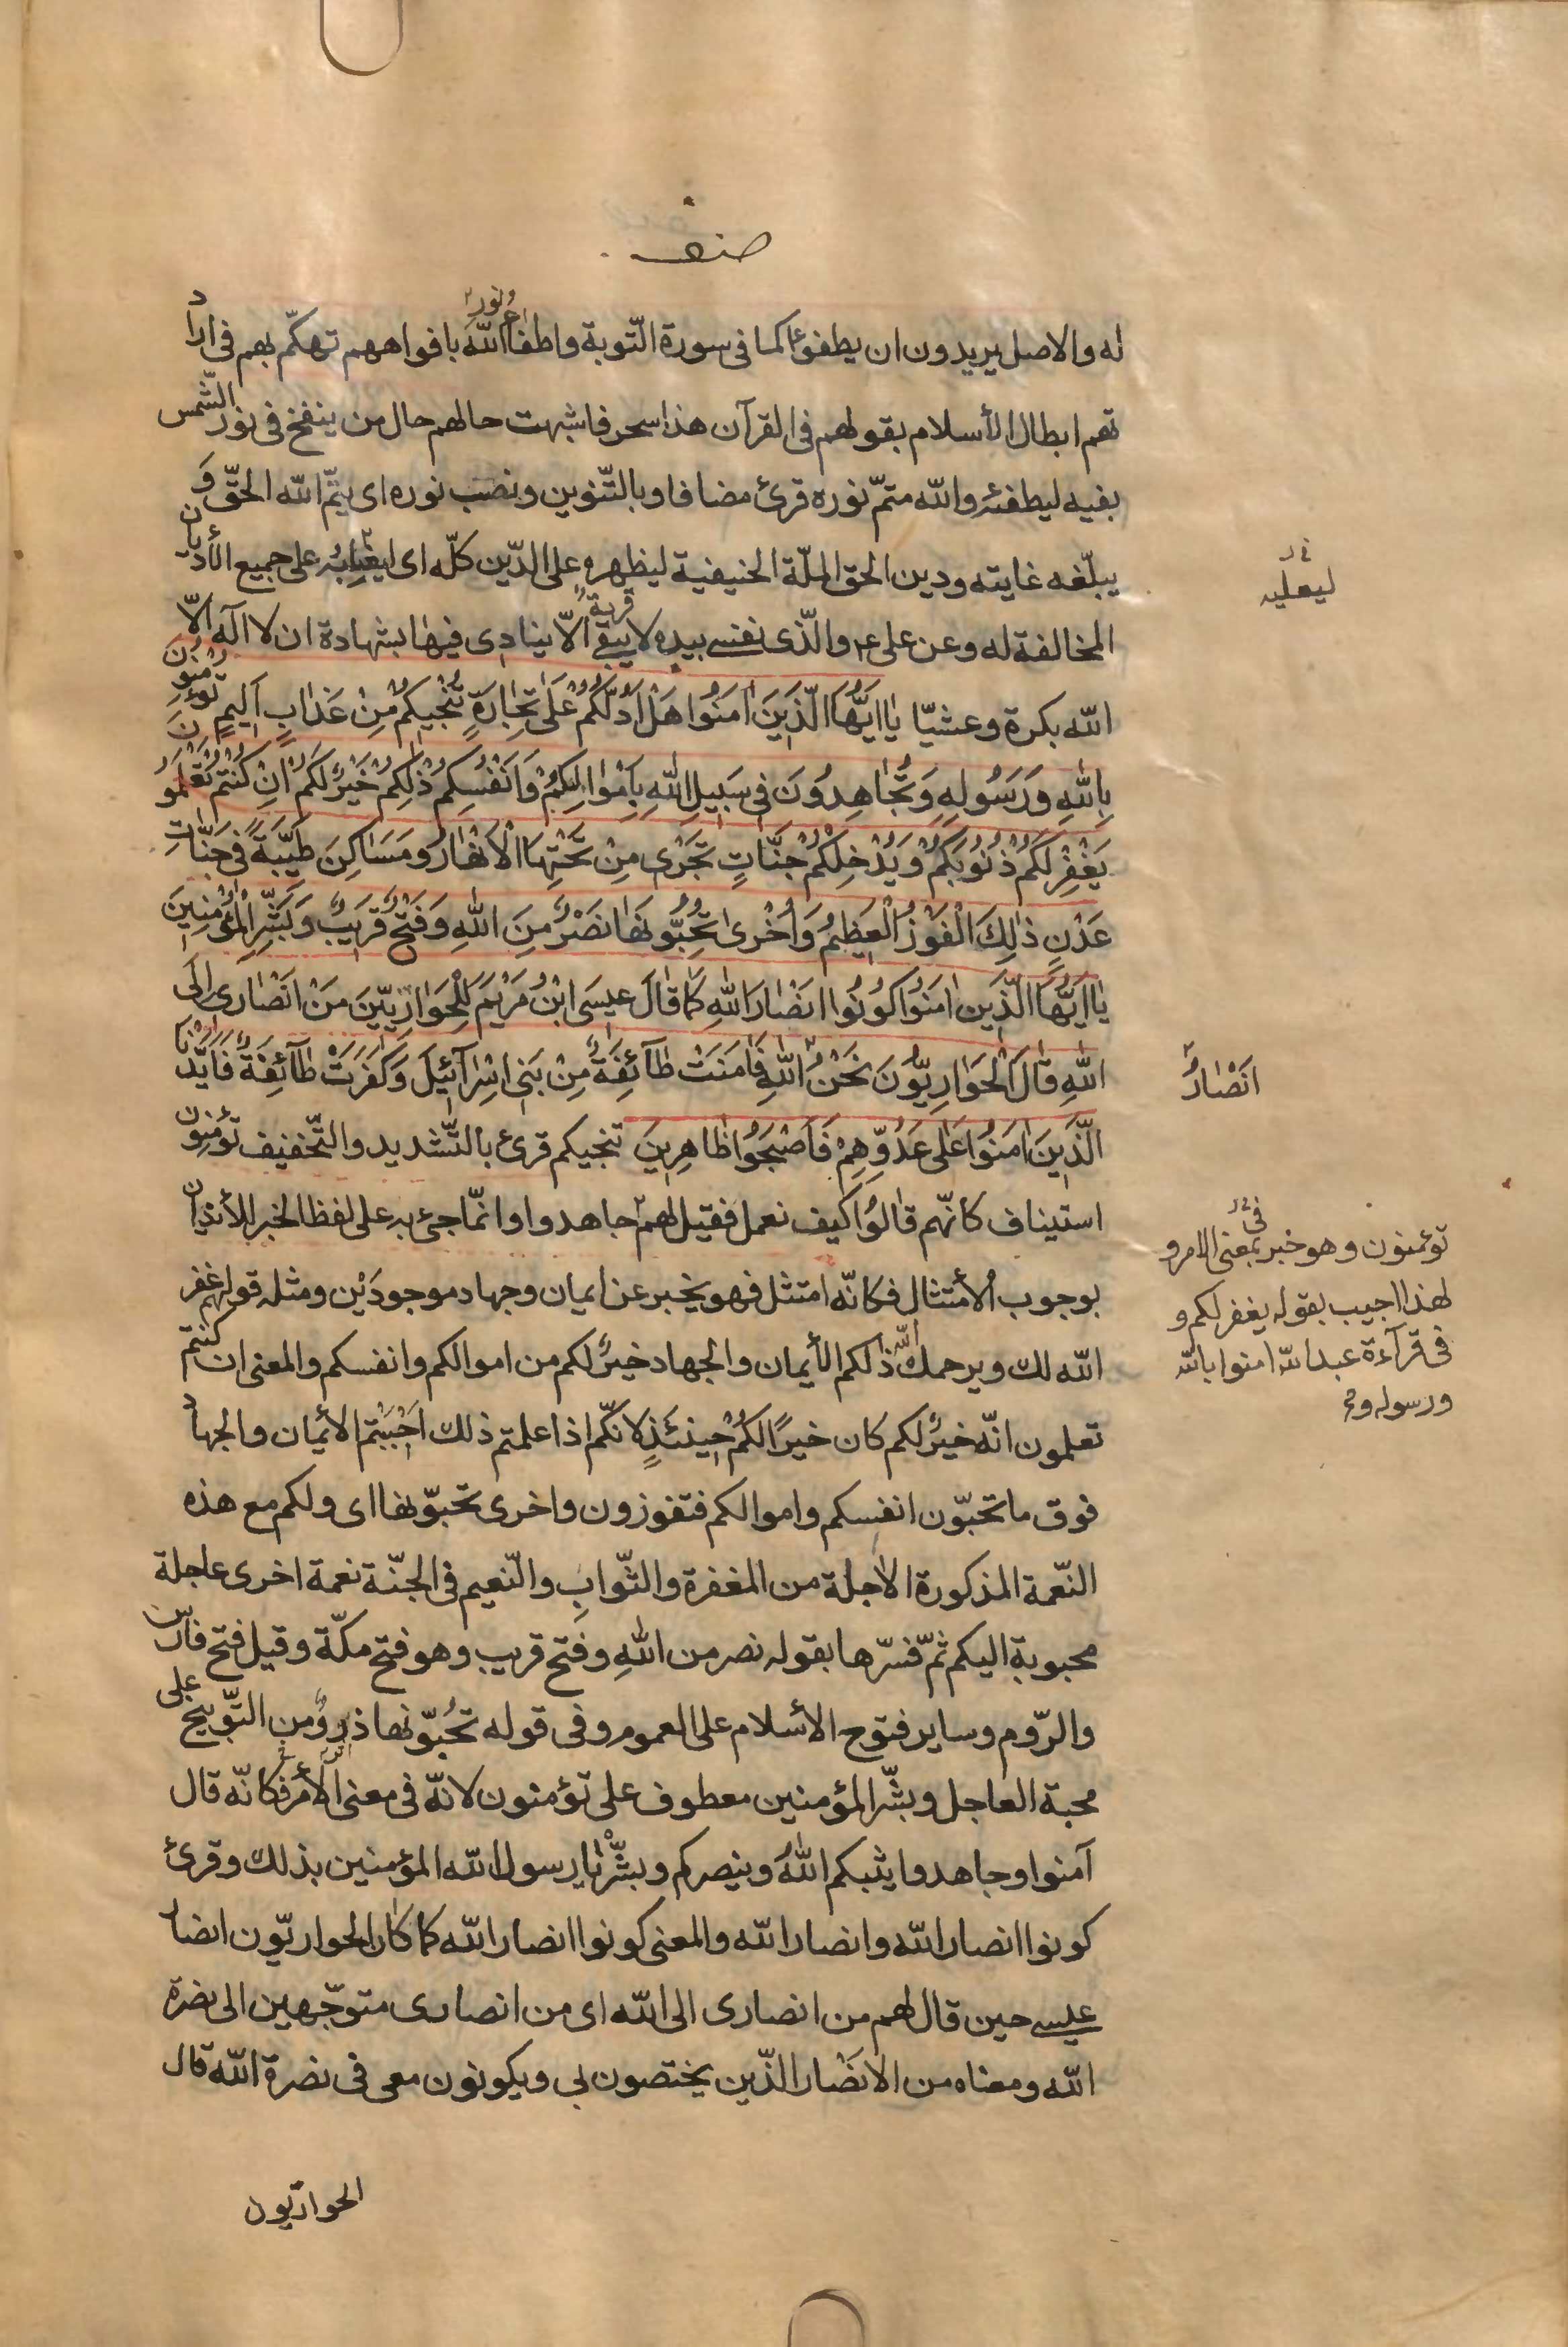 صف
له والاصل يريدون ان يطفؤا كما فى سورة التّوبة واطفاء نور اللّه بافواههم تهكّم بهم فى اراد
تهم ابطال الأسلام بقولهم فى القرآن هذا سحر فاشبهت حالهم حال من ينفخ فى نور الشّمس
بفيه ليطفئه واللّه متمّ نوره قرئ مضافا وبالتّنوين ونصب نوره اى يتمّ اللّه الحقّ وَ
يبلّغه غايته ودين الحق الملّة الحنيفية ليظهره على الدّين كلّه اى على جميع الأديان
ليعليه
المخالفة له وعن على ع والّذى نفسى بيده لا يبقى قرية الّا ينادى فيها بشهادة ان لا اله الّا
اللّه بكرة وعشيّا يٰا اَيُّهَا الَّذِينَ اٰمَنُوا هَلْ اَدُلُّكُمْ عَلٰى تِجٰارَةٍ تُنْجِيكُمْ مِنْ عَذٰابٍ اَلِيمٍ تُؤْمِنُونَ
بِاللّٰهِ وَرَسُولِهِ وَتُجٰاهِدُونَ فِى سَبِيلِ اللّٰهِ بِاَمْوٰالِكُمْ وَاَنْفُسِكُمْ ذٰلِكُمْ خَيْرٌ لَكُمْ اِنْ كُنْتُمْ تَعْلَمُونَ
يَغْفِرْ لَكُمْ ذُنُوبَكُمْ وَيُدْخِلْكُمْ جَنّٰاتٍ تَجْرِى مِنْ تَحْتِهَا الْاَنْهٰارُ وَمَسٰاكِنَ طَيِّبَةً فِى جَنّٰاتِ
عَدْنٍ ذٰلِكَ الْفَوْزُ الْعَظِيمُ وَاُخْرٰى تُحِبُّونَهٰا نَصْرٌ مِنَ اللّٰهِ وَفَتْحٌ قَرِيبٌ وَبَشِّرِ الْمُؤْمِنِينَ
يٰا اَيُّهَا الَّذِينَ اٰمَنُوا كُونُوا اَنْصٰارَ اللّٰهِ كَمٰا قٰالَ عِيسَى ابْنُ مَرْيَمَ لِلْحَوٰارِيِّينَ مَنْ اَنْصٰارِى اِلَى
اللّٰهِ قٰالَ الْحَوٰارِيُّونَ نَحْنُ اللّٰهِ فَاٰمَنَتْ طٰآئِفَةٌ مِنْ بَنِى اِسْرٰآئِيلَ وَكَفَرَتْ طٰآئِفَةٌ فَاَيَّدْنَا
اَنْصٰارُ
الَّذِينَ اٰمَنُوا عَلٰى عَدُوِّهِمْ فَاَصْبَحُوا ظٰاهِرِينَ تنجيكم قرئ بالتّشديد والتّخفيف تؤمنون
استيناف كانّهم قالوا كيف نعمل فقيل لهم جاهدوا وانّما جئ به على لفظ الخبر للأيذان
تؤمنون وهو خبر فى بمعنى الامر و
لهذا اجيب بقوله يغفر لكم و
فى قرآءة عبد اللّه امنوا باللّه
ورسوله و
بوجوب الأمتثال فكانّه امتثل فهو يخبر عن ايمان وجهاد موجودَيْن ومثله قولهم غفر
اللّه لك ويرحمك اللّه ذلكم الأيمان والجهاد خيرٌ لكم من اموالكم وانفسكم والمعنى ان كنتم
تعلمون انّه خيرٌ لكم كان خيرًا لكم حينئذٍ لانّكم اذا علمتم ذلك احببتم الأيمان والجهاد
فوق ما تحبّون انفسكم واموالكم فتفوزون واخرى تحبّونها اى ولكم مع هذه
النّعمة المذكورة الاٰجلة من المغفرة والثّواب والنّعيم فى الجنّة نعمة اخرى عاجلة
محبوبة اليكم ثمّ فسّرها بقوله نصر من اللّه وفتح قريب وهو فتح مكّة وقيل فتح فارس
والرّوم وساير فتوح الأسلام على العموم وفى قوله تحُبّونها ذروٌ من التّوبيخ على
محبة العاجل وبشّر المؤمنين معطوف على تؤمنون لانّه فى معنى الأمر فكانّه قال
آمنوا وجاهدوا يثبكم اللّهُ وينصركم وبشّرْ يا رسول اللّه المؤمنين بذلك وقرئ
كونوا انصار اللّه وانصارا للّه والمعنى كونوا انصار اللّه كما كان الحواريّون انصار
عيسى حين قال لهم من انصارى الى اللّه اى من انصارى متوجّهين الى نصرة
اللّه ومعناه من الانصار الّذين يختصون بى ويكونون معى فى نصرة اللّه قال
الحواريّون